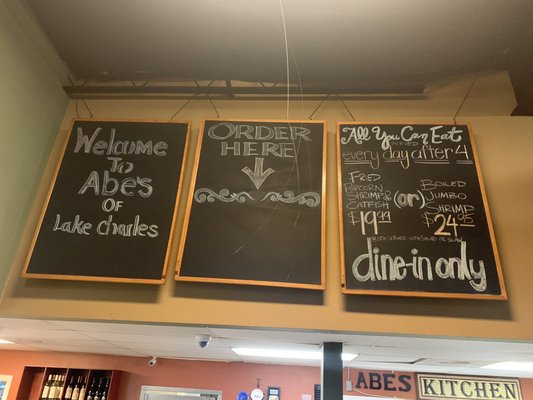 Welcome
To
Abe's
Of
Lake Charles
ORDER
HERE
All You Can Eat
every day after 4
Fried
Popcorn
Shrimp &
Catfish
$19.99
(or)
Boiled
Jumbo
Shrimp
$24.95
Both served with salad or slaw
dine-in only
ABE'S
KITCHEN